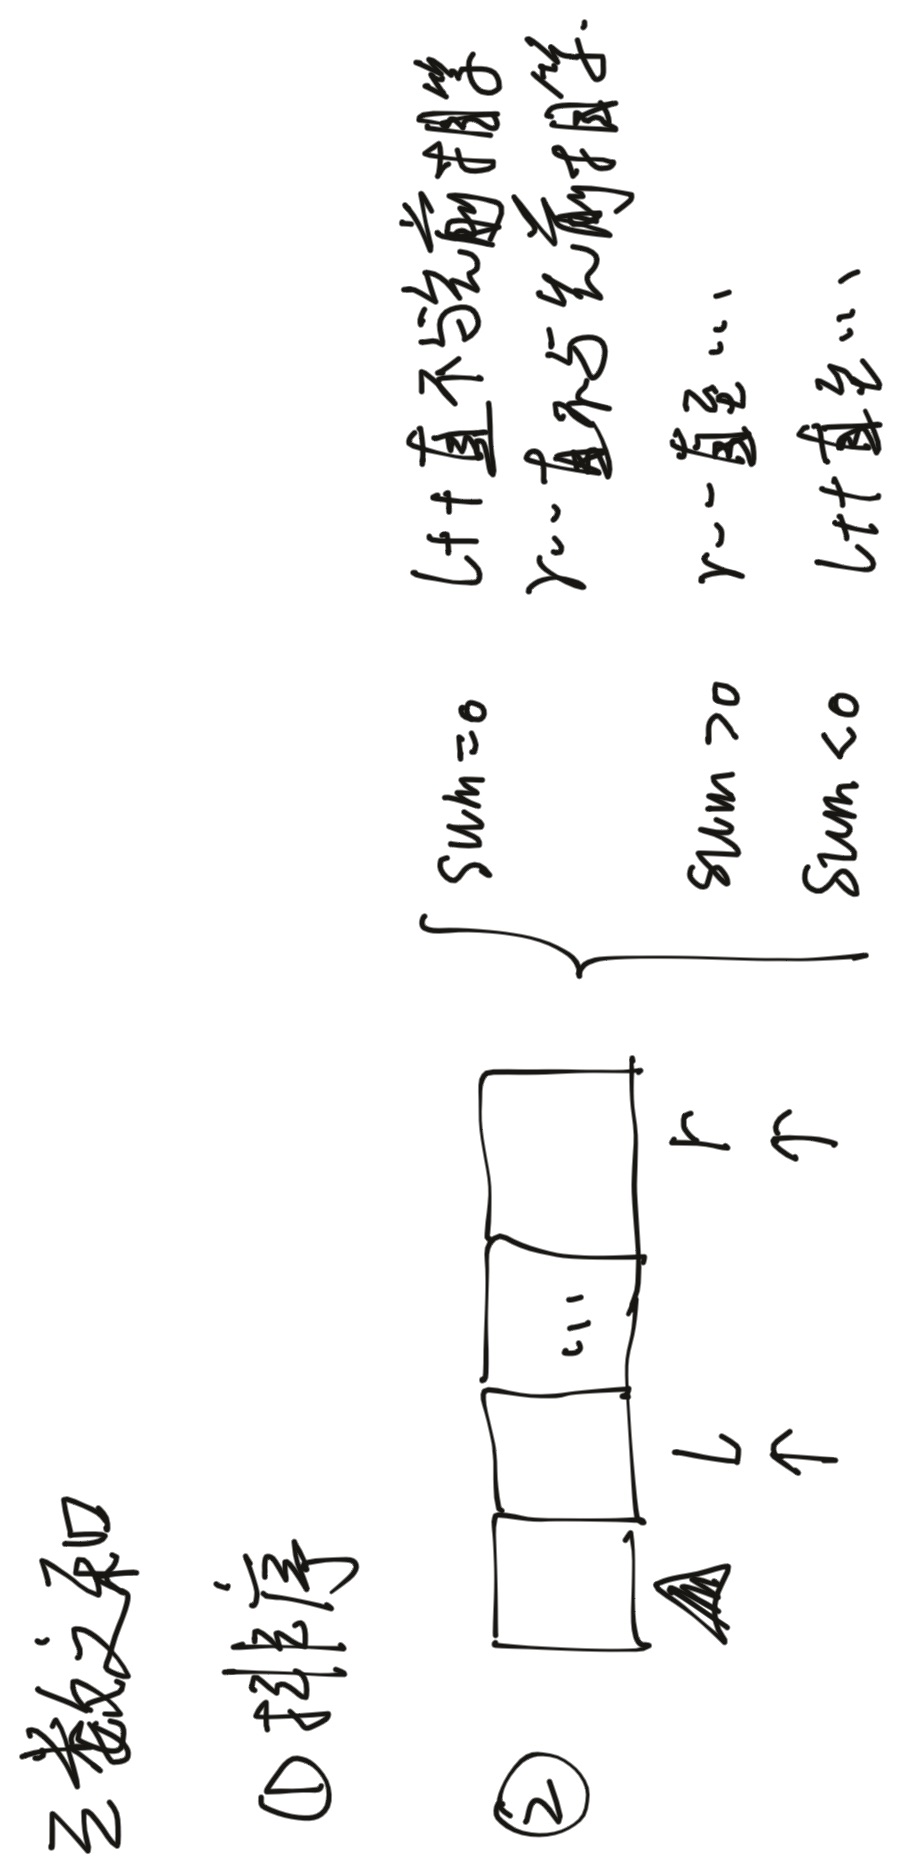 三数之和
① 排序
②
...
l
r
sum=0 l++直不与先前相等
r--直不与先前相等.
sum>0 r--直至...
sum<0 l++直至...